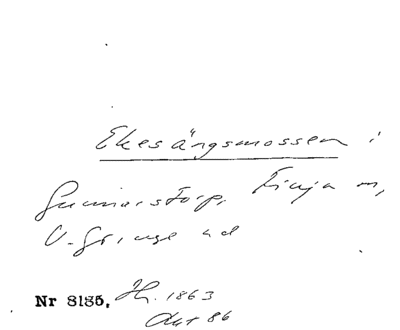 Ekesängsmossen i
Gunnarstorp, Finja m,
V-Göinge hd
Nr 8185, Hr. 1863
dat 86